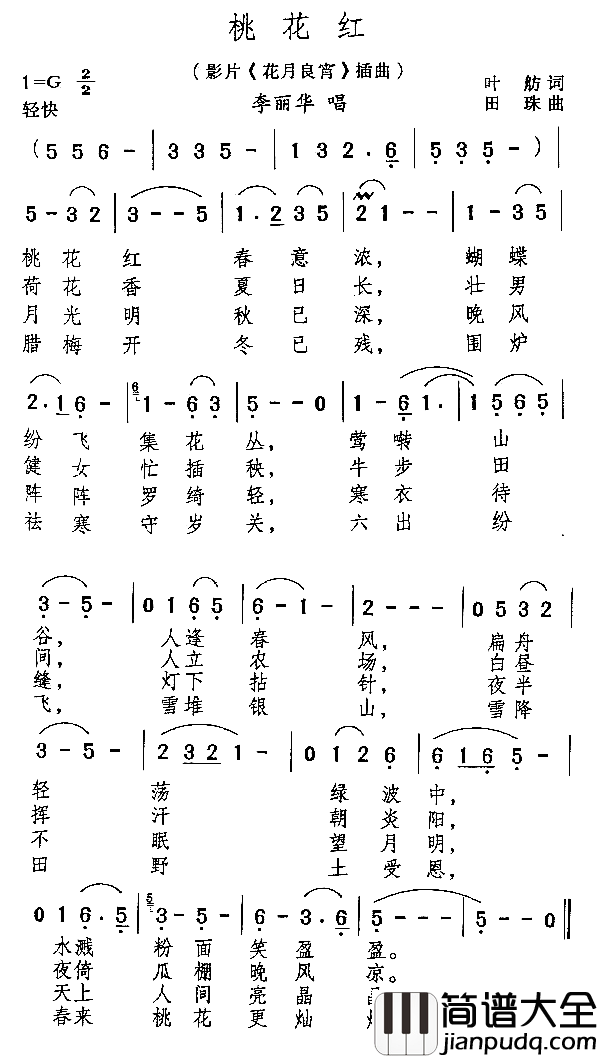 桃花红
(影片《花月良宵》插曲)
1=G 2/2
叶舫 词
轻快
李丽华 唱
田珠 曲
(5 5 6 - | 3 3 5 - | 1 3 2 . 6 | 5 3 5 - )
5 - 3 2 | 3 - - 5 | 1 . 2 3 5 | 2 1 - - | 1 - 3 5
桃花红 春意浓, 蝴蝶
荷花香 夏日长, 壮男
月光明 秋已深, 晚风
腊梅开 冬已残, 围炉
2 . 1 6 - | 6 1 - 6 3 | 5 - - 0 | 1 - 6 1 . | 1 5 6 5
纷飞 集花丛, 莺啭 山
健女 忙插秧, 牛步 田
阵阵 罗绮轻, 寒衣 待
祛寒 守岁关, 六出 纷
3 - 5 - | 0 1 6 5 | 6 - 1 - | 2 - - - | 0 5 3 2
谷, 人逢春 风, 扁舟
间, 人立农 场, 白昼
缝, 灯下拈 针, 夜半
飞, 雪堆银 山, 雪降
3 - 5 - | 2 3 2 1 - | 0 1 2 6 | 6 1 6 5 -
轻 荡 绿波中,
挥 汗 朝炎阳,
不 眠 望月明,
田 野 土受恩,
0 1 6 . 5 | 5 3 - 5 - | 6 - 3 . 6 | 5 - - - | 5 - - 0
水溅 粉面 笑盈 盈。
夜倚 瓜棚 晚风 凉。
天上 人间 亮晶
春来 桃花 更灿
简谱大全
www.jianpudq.com